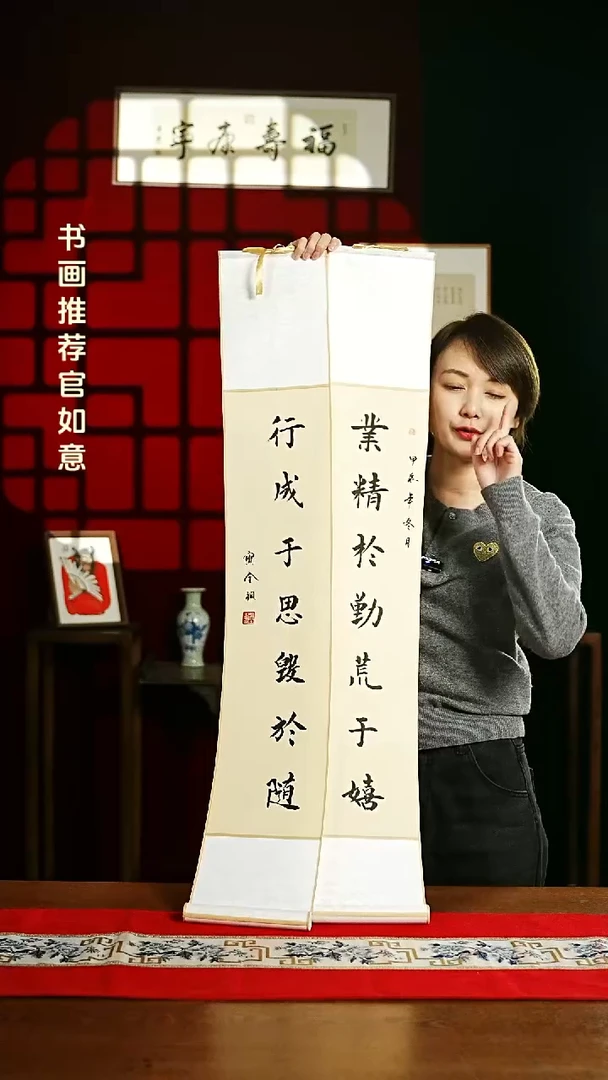 福壽康宁
书画推荐官如意
甲辰年冬月
業精於勤荒于嬉
行成于思毀於随